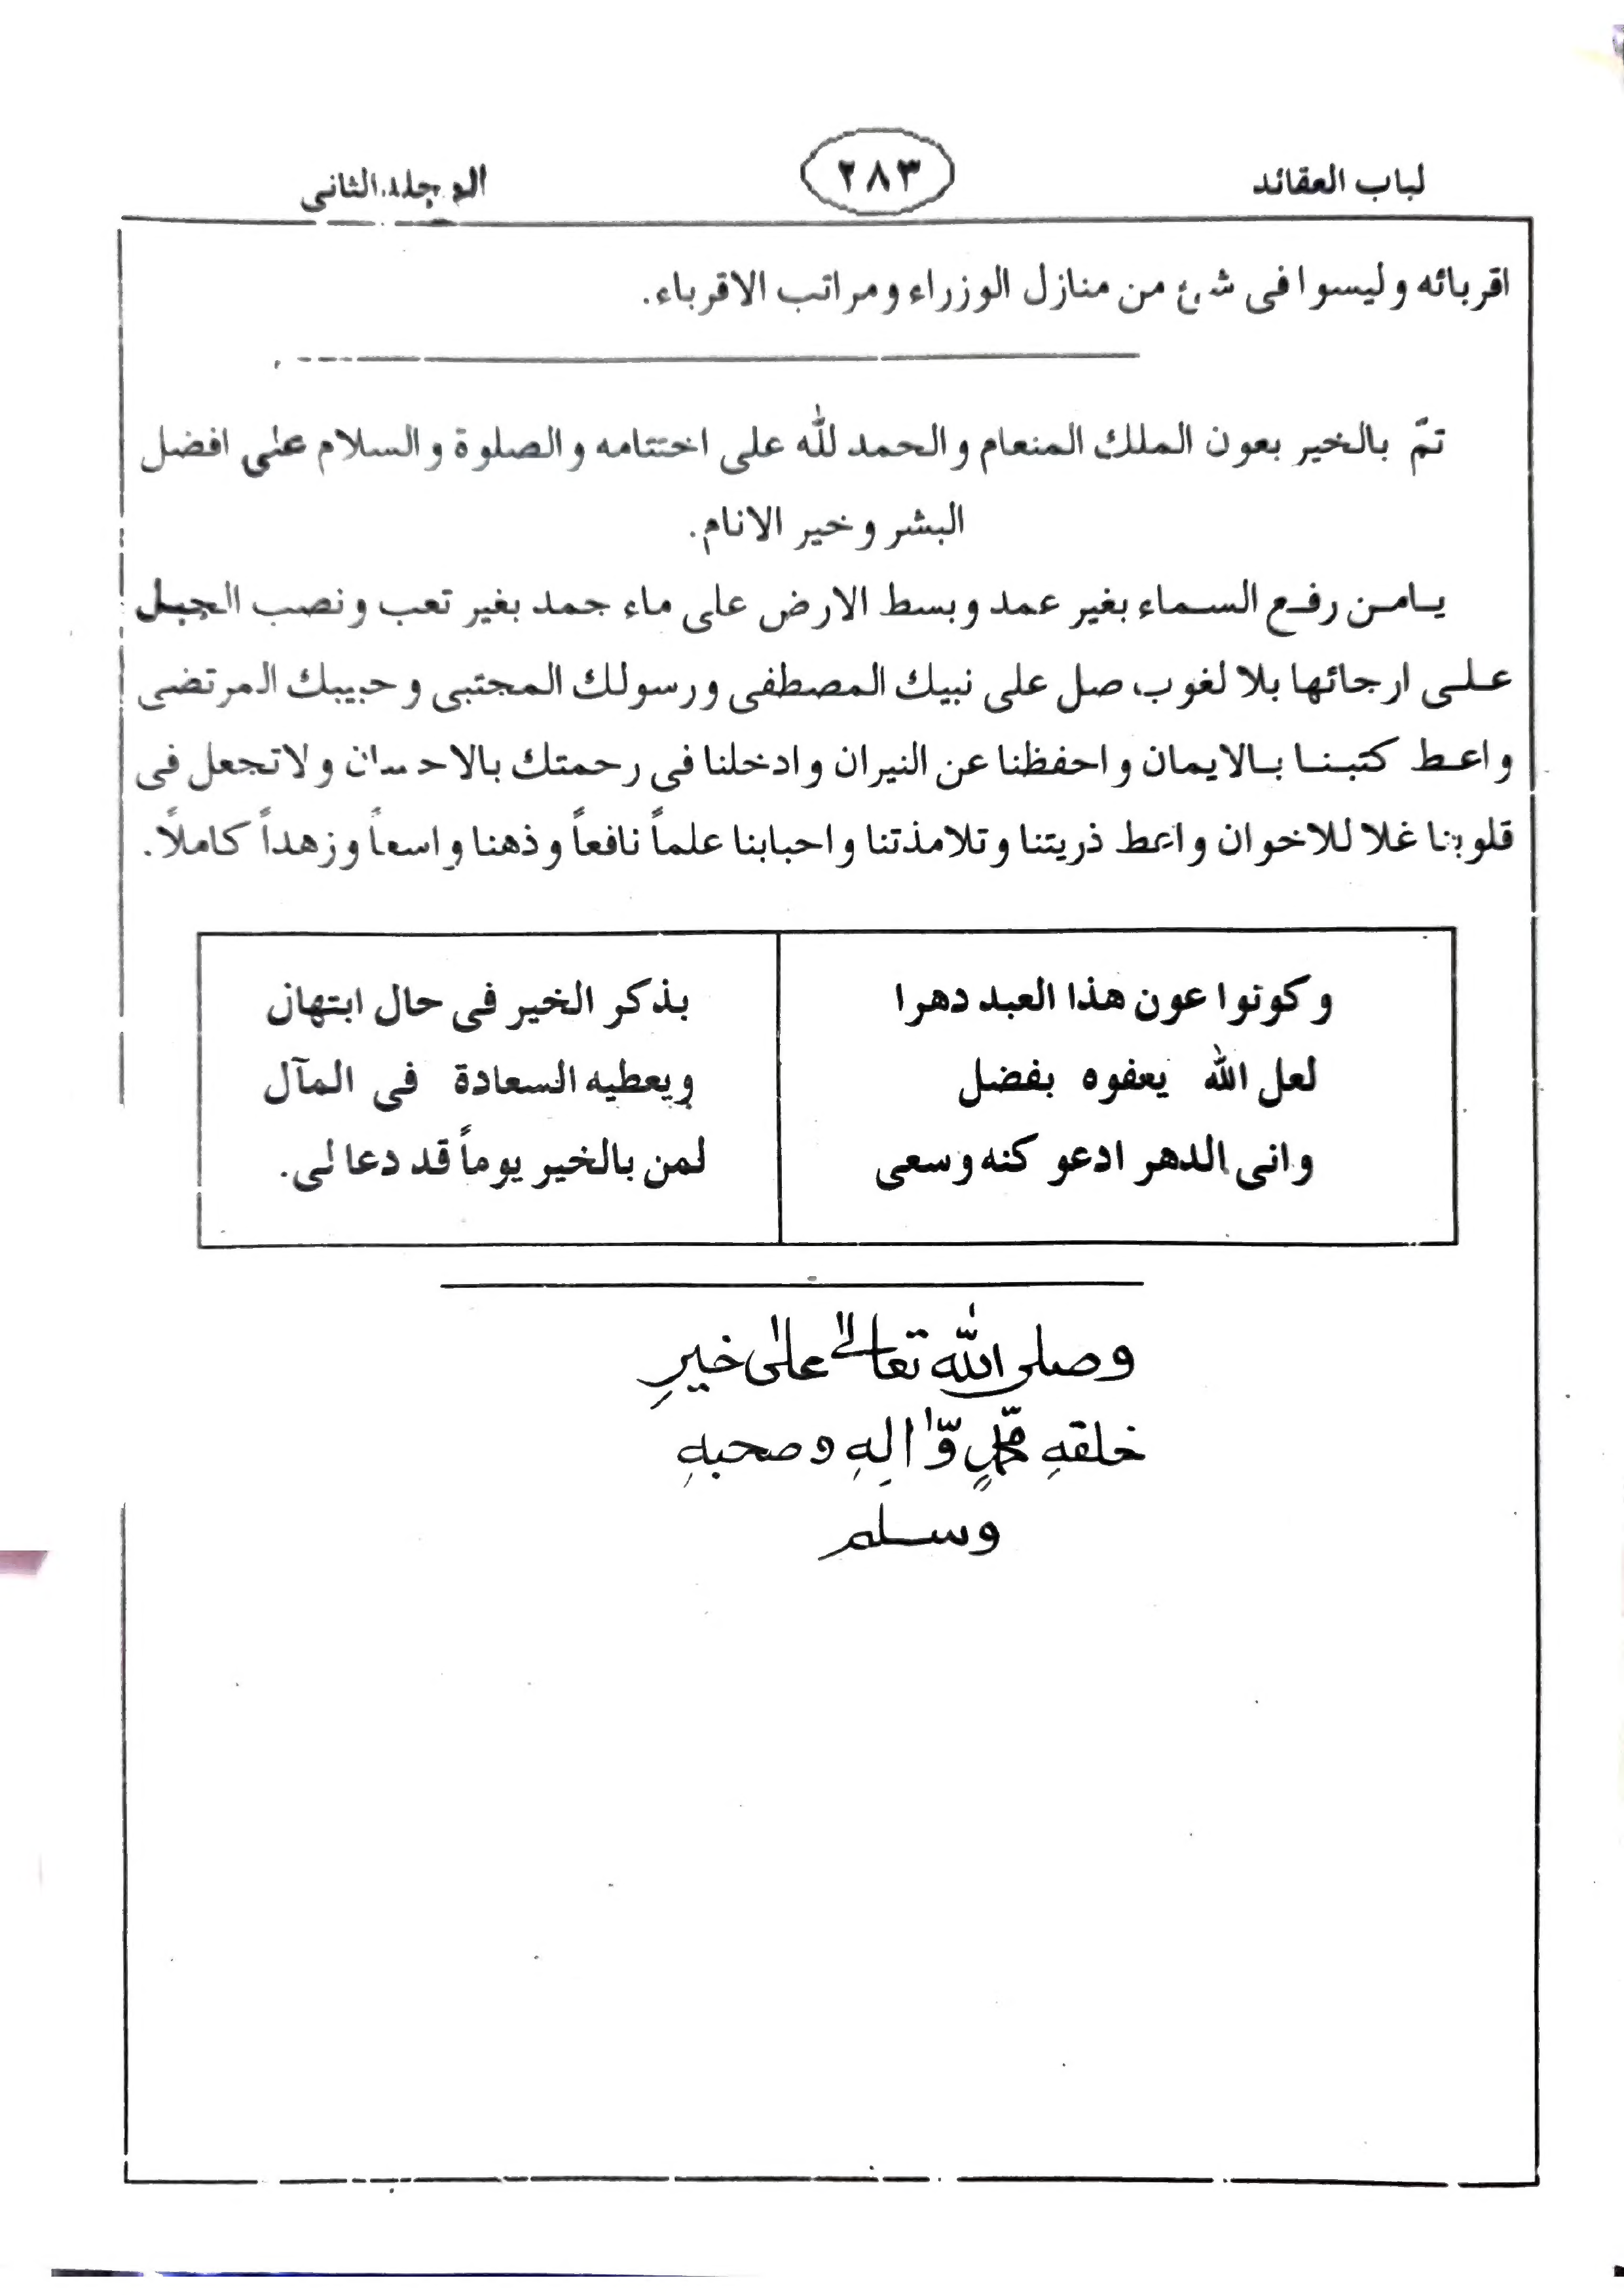 لباب العقائد
٢٨٣
المجلد الثانى
اقربائه وليسوا فى شئ من منازل الوزراء ومراتب الاقرباء.
تمّ بالخير بعون الملك المنعام والحمد لله على اختتامه والصلوة والسلام على افضل
البشر وخير الانام.
يامن رفع السماء بغير عمد وبسط الارض على ماء جمد بغير تعب ونصب الجبل
على ارجائها بلا لغوب صل على نبيك المصطفى ورسولك المجتبى وحبيبك المرتضى
واعط كتبنا بالايمان واحفظنا عن النيران وادخلنا فى رحمتك بالاحسان ولاتجعل فى
قلوبنا غلا للاخوان واعط ذريتنا وتلامذتنا واحبابنا علماً نافعاً وذهنا واسعاً وزهداً كاملاً.
وكونوا عون هذا العبد دهرا بذكر الخير فى حال ابتهان
لعل الله يعفوه بفضل ويعطيه السعادة فى المآل
وانى الدهر ادعو كنه وسعى لمن بالخير يوماً قد دعا لى.
وصلى الله تعالىٰ علىٰ خيرِ
خلقهِ محمّدٍ وّاٰلِهِ وصحبهِ
وسلم